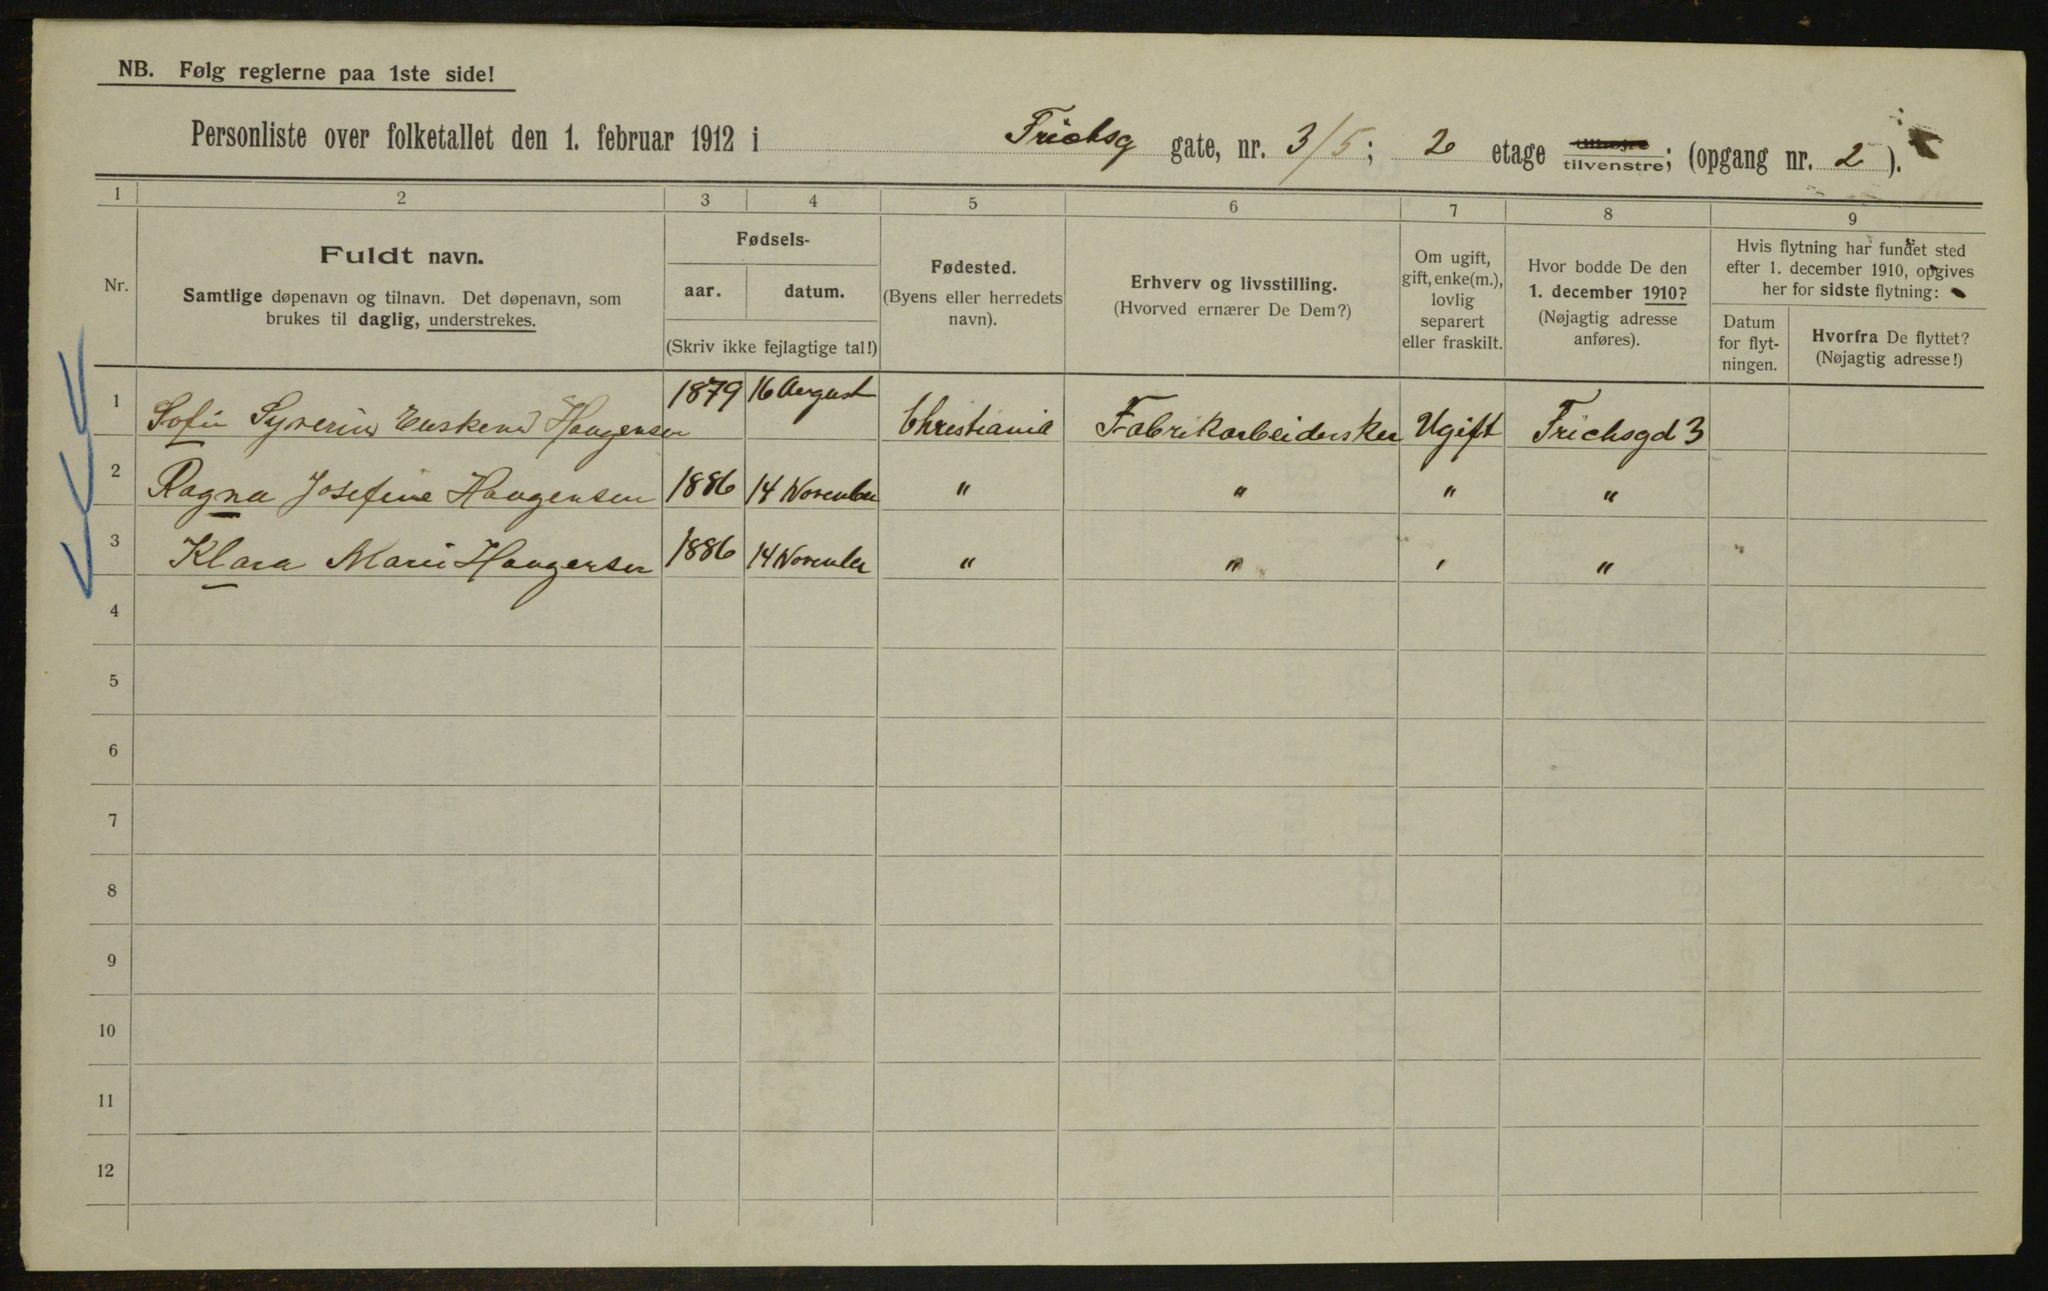 NB. Følg reglerne paa 1ste side!
Personliste over folketallet den 1. februar 1912 i Frichsg gate, nr. 3/5; 2 etage tilvenstre; (opgang nr. 2).
1 2 3 4 5 6 7 8 9
Nr.
Fuldt navn.
Samtlige døpenavn og tilnavn. Det døpenavn, som
brukes til daglig, understrekes.
Fødsels-
aar. datum.
(Skriv ikke fejlagtige tal!)
Fødested.
(Byens eller herredets
navn).
Erhverv og livsstilling.
(Hvorved ernærer De Dem?)
Om ugift,
gift, enke(m.),
lovlig
separert
eller fraskilt.
Hvor bodde De den
1. december 1910?
(Nøjagtig adresse
anføres).
Hvis flytning har fundet sted
efter 1. december 1910, opgives
her for sidste flytning:
Datum
for flyt-
ningen.
Hvorfra De flyttet?
(Nøjagtig adresse!)
1 Sofie Syverin Haugensen 1879 16 August Christiania Fabrikarbeidersker Ugift Frichsgd 3
2 Ragna Josefine Haugensen 1886 14 November " " " "
3 Klara Marie Haugensen 1886 14 November " " " "
4
5
6
7
8
9
10
11
12